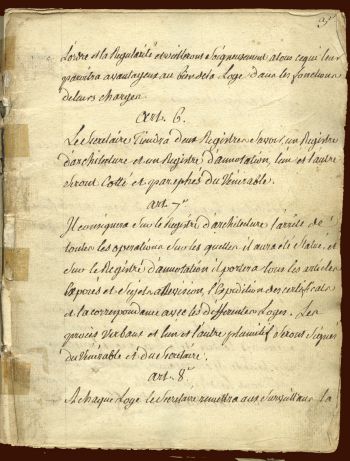 3e
L'ordre et la Regularité et veilleront soigneusement a tout ce qui leur
paroitra avantageux au bien de la Loge dans les fonctions
de leurs charges.
Art. 6.
Le Secretaire Tiendra deux Registres Savoir, un Registre
d'architecture et un Registre d'annotation, l'un et l'autre
seront Cotté et paraphés du Vénérable.
art. 7e
Il consignera Sur le Registre d'architecture l'arrêté de
toutes les operations Sur les quelles il aura été Statué, et
Sur le Registre d'annotation il portera tous les articles
Exposés et Sujets a Revision, l'Expedition des certificats
et la correspondance avec les differentes Loges. Les
procès Verbaux et l'un et l'autre plumitif Seront Signés
du Vénérable et du Secretaire.
art. 8e
A chaque Loge le Secretaire remettra aux Surveillans la